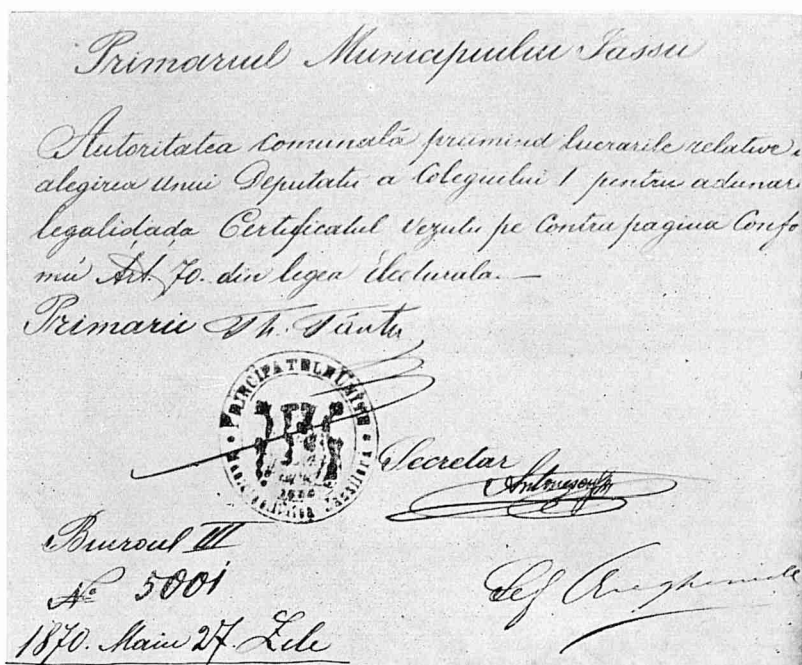 Primariul Municipiului Iassu
Autoritatea comunală priimind lucrarile relative
alegirea unui Deputatu a Colegiului 1 pentru adunar
legalisada Certificatul vezutu pe contra pagina Confo
mŭ Art. 70. din legea electurala. —
Primariu Th. Tăutu
PRINCIPATELE UNITE
Secretar
Antonescu
Biuroul III
No 5001
Șef
1870. Maiu 27. Zile